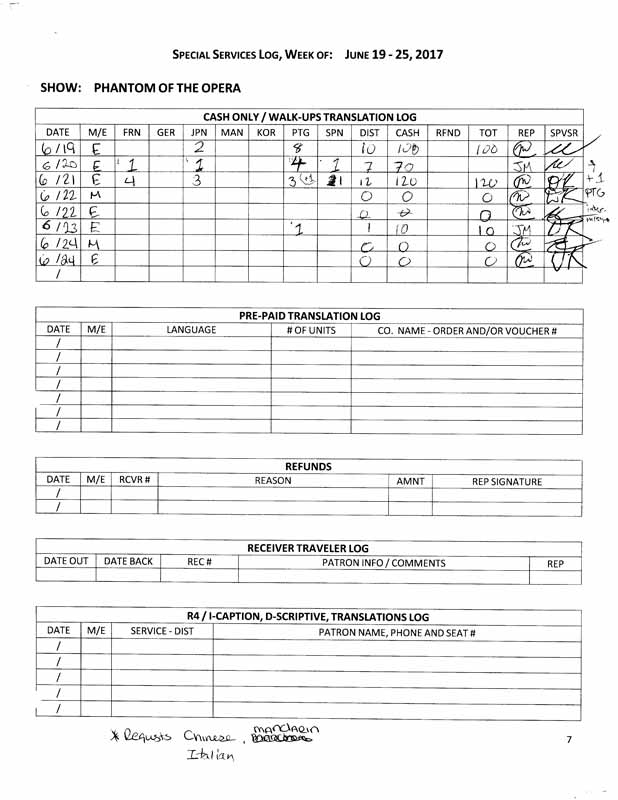 SPECIAL SERVICES LOG, WEEK OF: JUNE 19 - 25, 2017
SHOW: PHANTOM OF THE OPERA
CASH ONLY / WALK-UPS TRANSLATION LOG
DATE M/E FRN GER JPN MAN KOR PTG SPN DIST CASH RFND TOT REP SPVSR
6/19 E 2 8 10 100 100
6/20 E 1 1 4 1 7 70 JM
6/21 E 4 3 3 +1 1 12 120 120 +1
6/22 M 0 0 0 PTG
6/22 E 0 0 0
6/23 E 1 1 10 10 JM
6/24 M 0 0 0
6/24 E 0 0 0
/
PRE-PAID TRANSLATION LOG
DATE M/E LANGUAGE # OF UNITS CO. NAME - ORDER AND/OR VOUCHER #
/
/
/
/
/
/
/
REFUNDS
DATE M/E RCVR # REASON AMNT REP SIGNATURE
/
/
RECEIVER TRAVELER LOG
DATE OUT DATE BACK REC # PATRON INFO / COMMENTS REP
R4 / I-CAPTION, D-SCRIPTIVE, TRANSLATIONS LOG
DATE M/E SERVICE - DIST PATRON NAME, PHONE AND SEAT #
/
/
/
/
/
* Requsts Chinese, mandarin
Italian
7